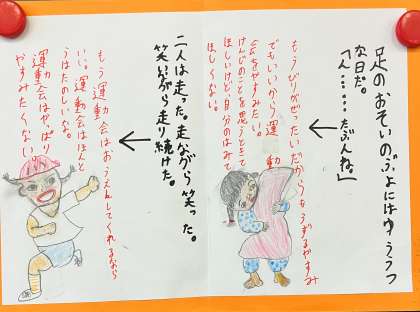 足のおそいのぶよにはゆううつ
な日だ。
「ん……たぶんね。」
もうびりがぜったいだからもうずるやすみ
でもいいから運動
会をやすみたい。
けんじのことを思うときて
ほしいけど、自分のはみて
ほしくない。
二人は走った。走ながら笑った。
笑いながら走り続けた。
もう運動会はおうえんしてくれるなら
いい。運動会はほんと
うはたのしいな。
運動会はやっぱり
やすみたくない